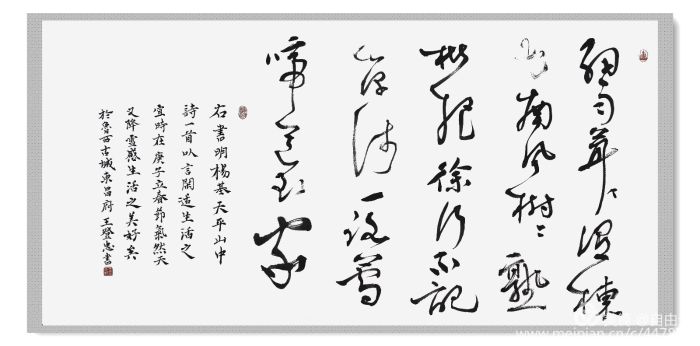 細雨茸〻湿楝
花南風樹〻熟
枇杷徐行不記
山深淺一路鶯
啼送到家
右書明楊基天平山中
詩一首以言開造生活之
宜時在庚子立春節氣然天
又降靈感生活之美好矣
於魯西古城東昌府王忠書
@自由
www.meipian.cn/c/4478